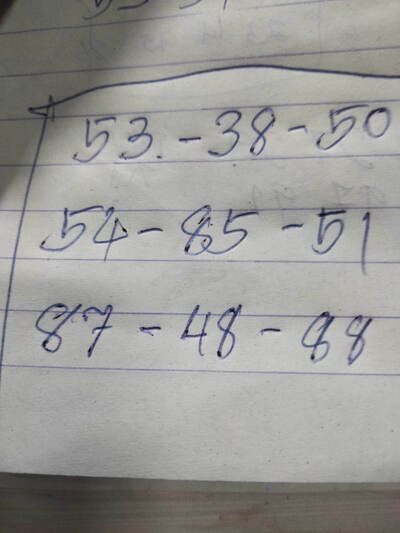 53.-38-50
54-85-51
87-48-88